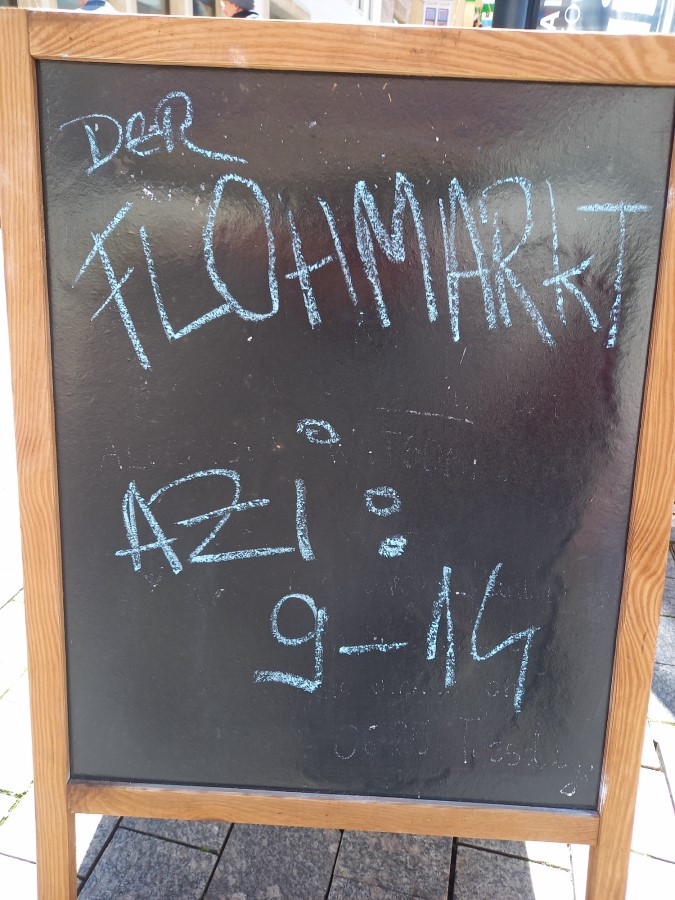 DER
FLOHMARKT
AZI :
9-14